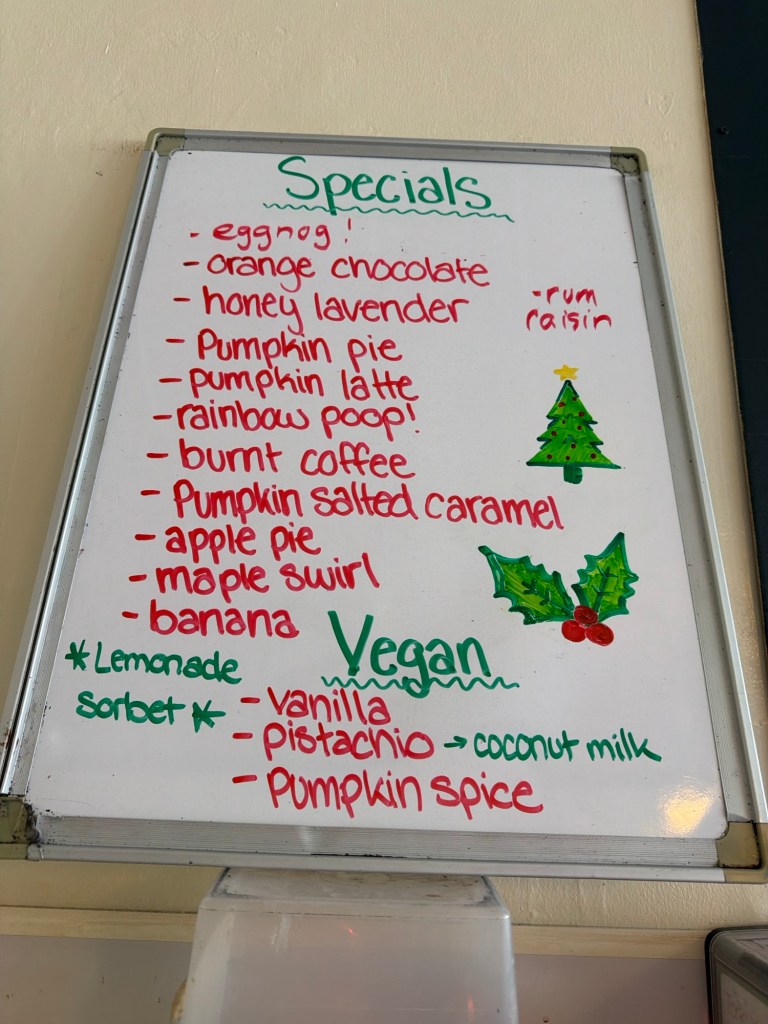 Specials
- eggnog!
- orange chocolate
- honey lavender
- rum
raisin
- Pumpkin pie
- pumpkin latte
- rainbow poop!
- burnt coffee
- Pumpkin salted caramel
- apple pie
- maple swirl
- banana
* Lemonade
Sorbet *
Vegan
- vanilla
- pistachio → coconut milk
- Pumpkin spice